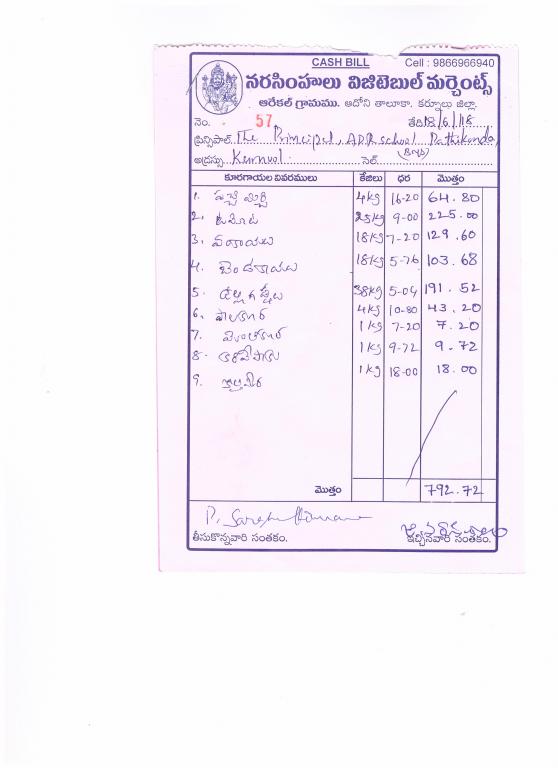 CASH BILL Cell : 9866966940
నరసింహులు విజిటెబుల్ మర్చెంట్స్
ఆరేకల్ గ్రామము. ఆదోని తాలూకా. కర్నూలు జిల్లా.
నెం. 57 తేది 18/6/18
ప్రిన్సిపాల్ The Principal, APR school Pathikonda,
అడ్రస్సు Kurnool. నెల్ (Boys)
కూరగాయల వివరములు కేజీలు ధర మొత్తం
1. పచ్చి మిర్చి 4kg 16-20 64.80
2. టమోట 25kg 9-00 225.00
3. వంకాయలు 18kg 7-20 129.60
4. బెండకాయలు 18kg 5-76 103.68
5. 38kg 5-04 191.52
6. పాలకూర 4kg 10-80 43.20
7. మెంతికూర 1kg 7-20 7.20
8. కరివేపాకు 1kg 9-72 9.72
9. కొత్తిమీర 1kg 18-00 18.00
మొత్తం 792.72
తీసుకొన్నవారి సంతకం. ఇచ్చినవారి సంతకం.